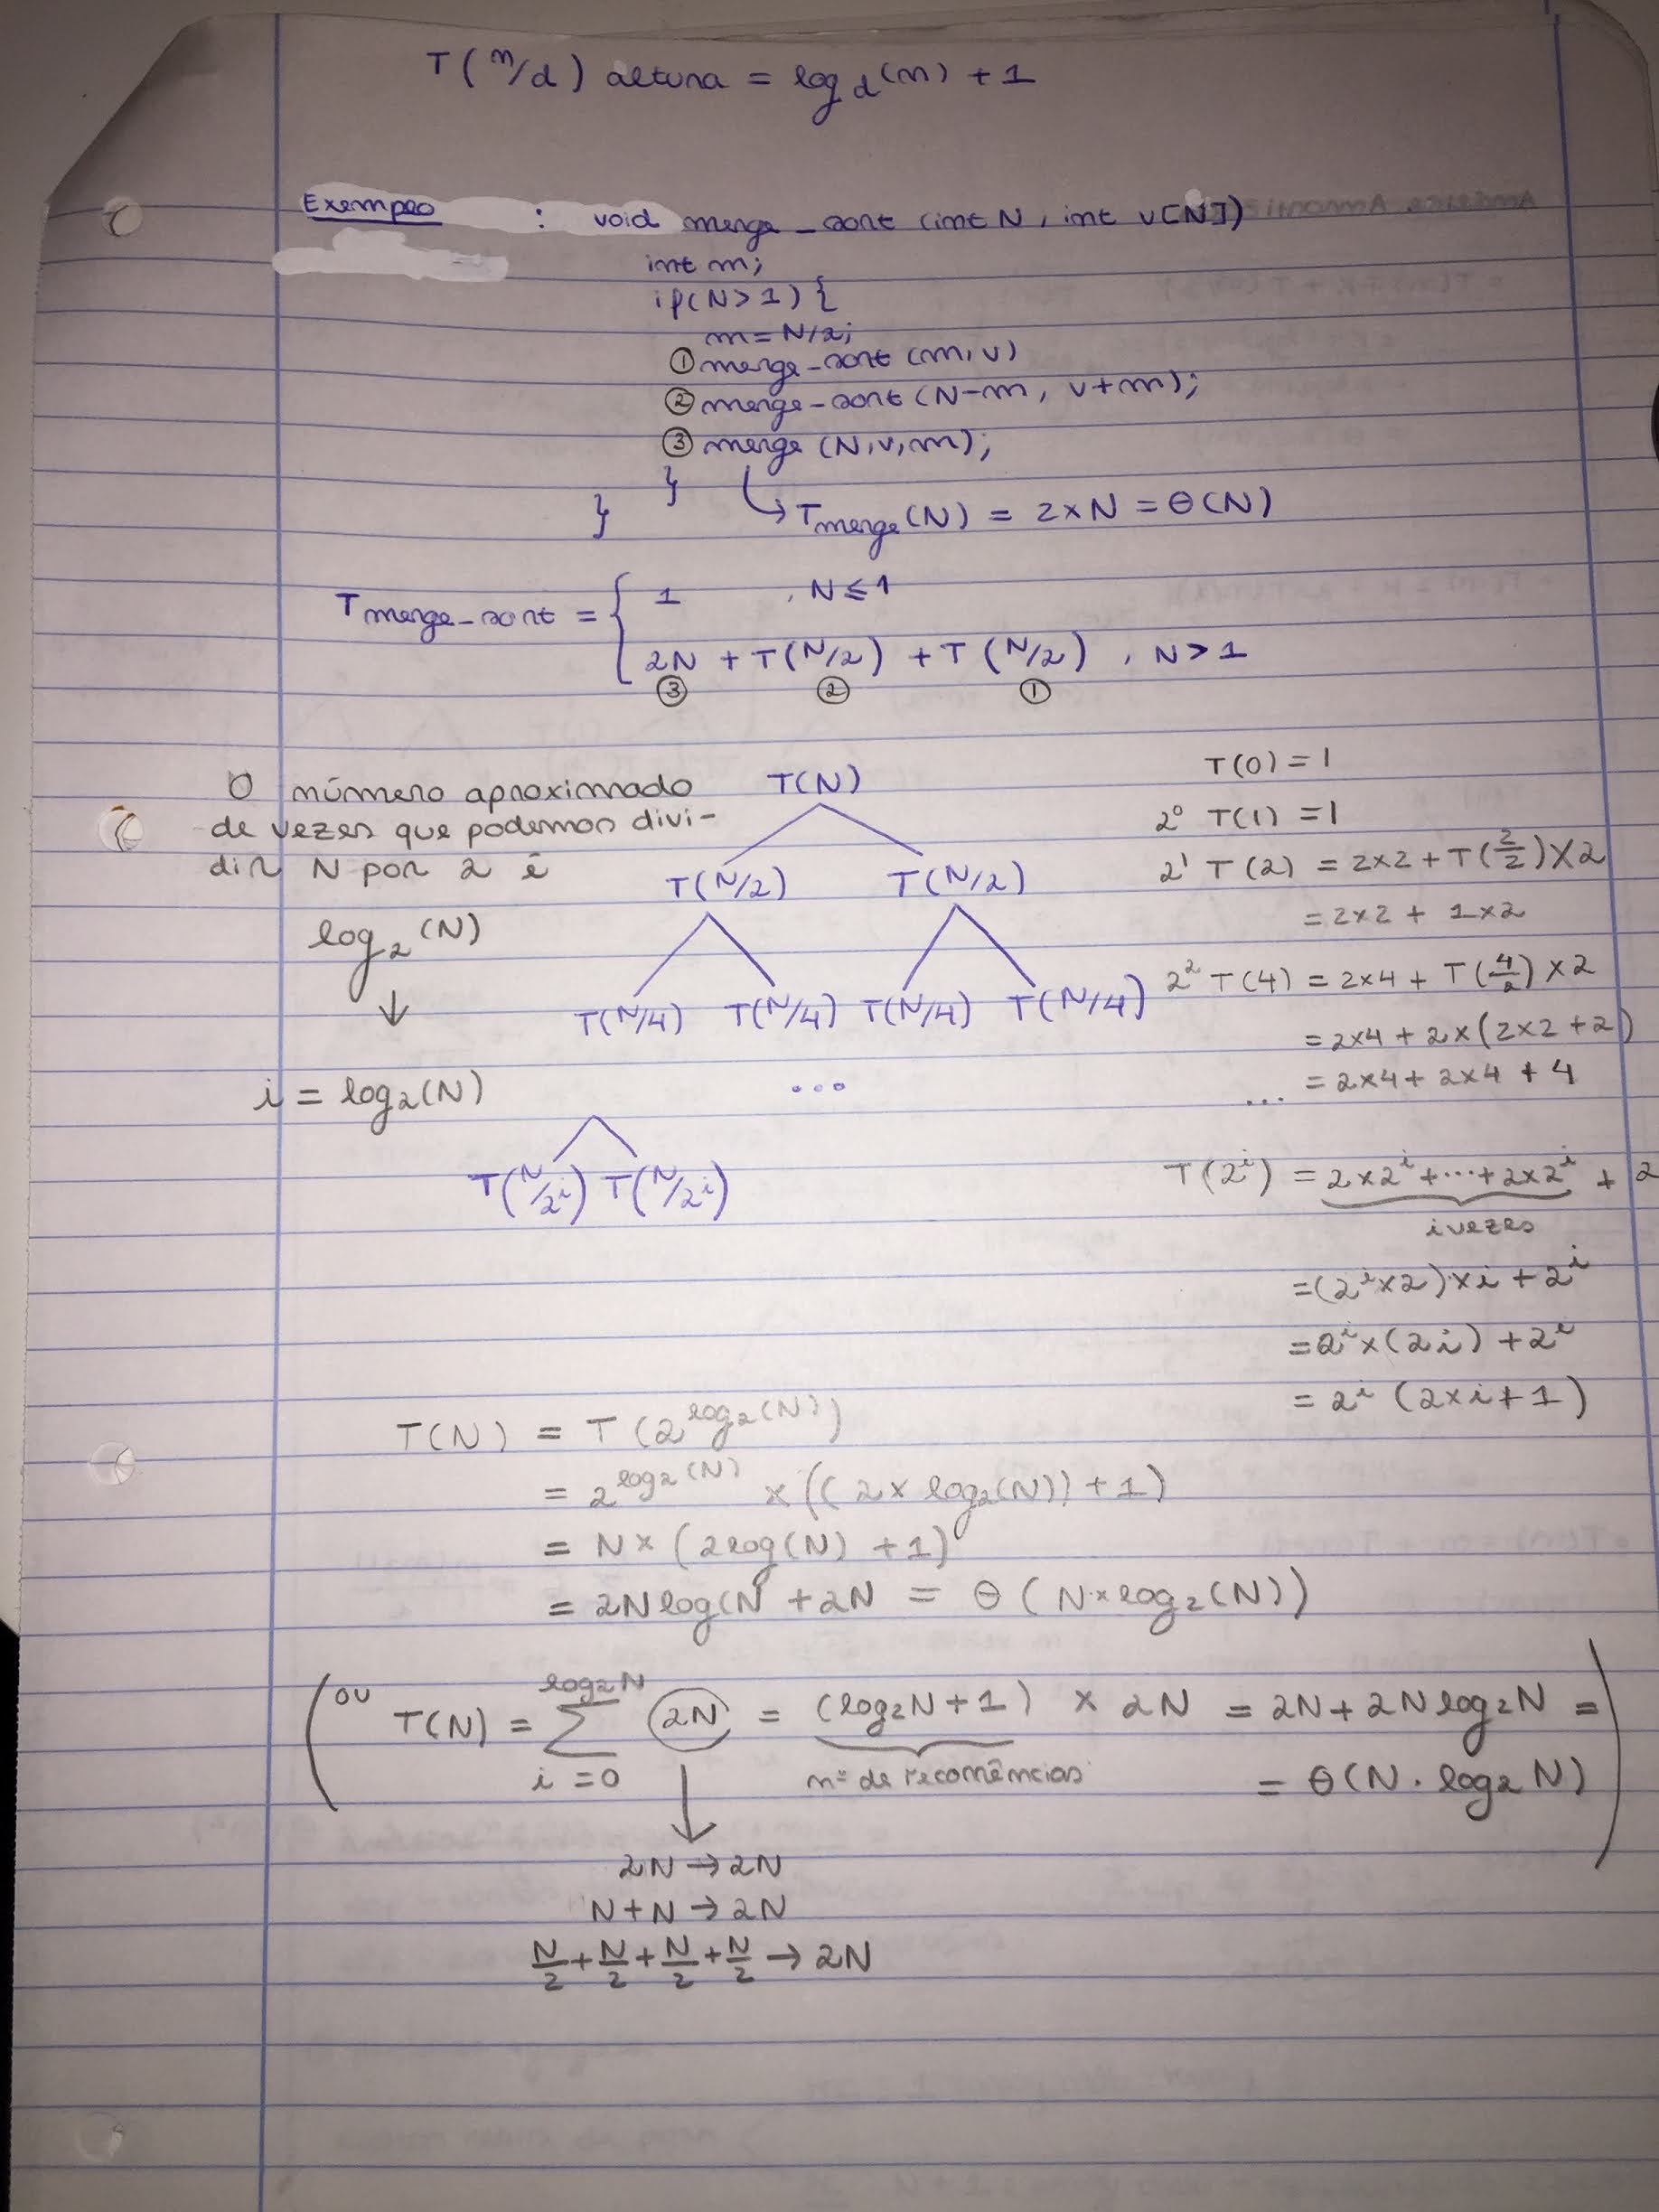 T(n/d) altura = log_d(n) + 1
Exemplo : void merge_sort (int N, int v[N])
int m;
if(N>1) {
m = N/2;
① merge_sort (m, v)
② merge_sort (N-m, v+m);
③ merge (N,v,m);
}
} ↳ Tmerge(N) = 2×N = Θ(N)
Tmerge_sort = { 1 , N ≤ 1
2N + T(N/2) + T(N/2) , N > 1
③ ② ①
O número aproximado
de vezes que podemos divi-
dir N por 2 é
log₂(N)
↓
i = log₂(N)
T(N)
T(N/2) T(N/2)
T(N/4) T(N/4) T(N/4) T(N/4)
...
T(N/2^i) T(N/2^i)
T(0) = 1
2⁰ T(1) = 1
2¹ T(2) = 2×2 + T(2/2)×2
= 2×2 + 1×2
2² T(4) = 2×4 + T(4/2)×2
= 2×4 + 2×(2×2+2)
= 2×4 + 2×4 + 4
...
T(2^i) = 2×2^i + ... + 2×2^i + 2
i vezes
= (2^i×2)×i + 2^i
= 2^i×(2i) + 2^i
= 2^i (2×i+1)
T(N) = T(2^log₂(N))
= 2^log₂(N) × ((2×log₂(N)) + 1)
= N × (2log(N) + 1)
= 2Nlog(N + 2N = Θ(N×log₂(N))
(ou T(N) = Σ log₂N i=0 2N = (log₂N+1) × 2N = 2N + 2N log₂N =
nº de recorrências
= Θ(N . log₂ N))
↓
2N → 2N
N+N → 2N
N/2 + N/2 + N/2 + N/2 → 2N